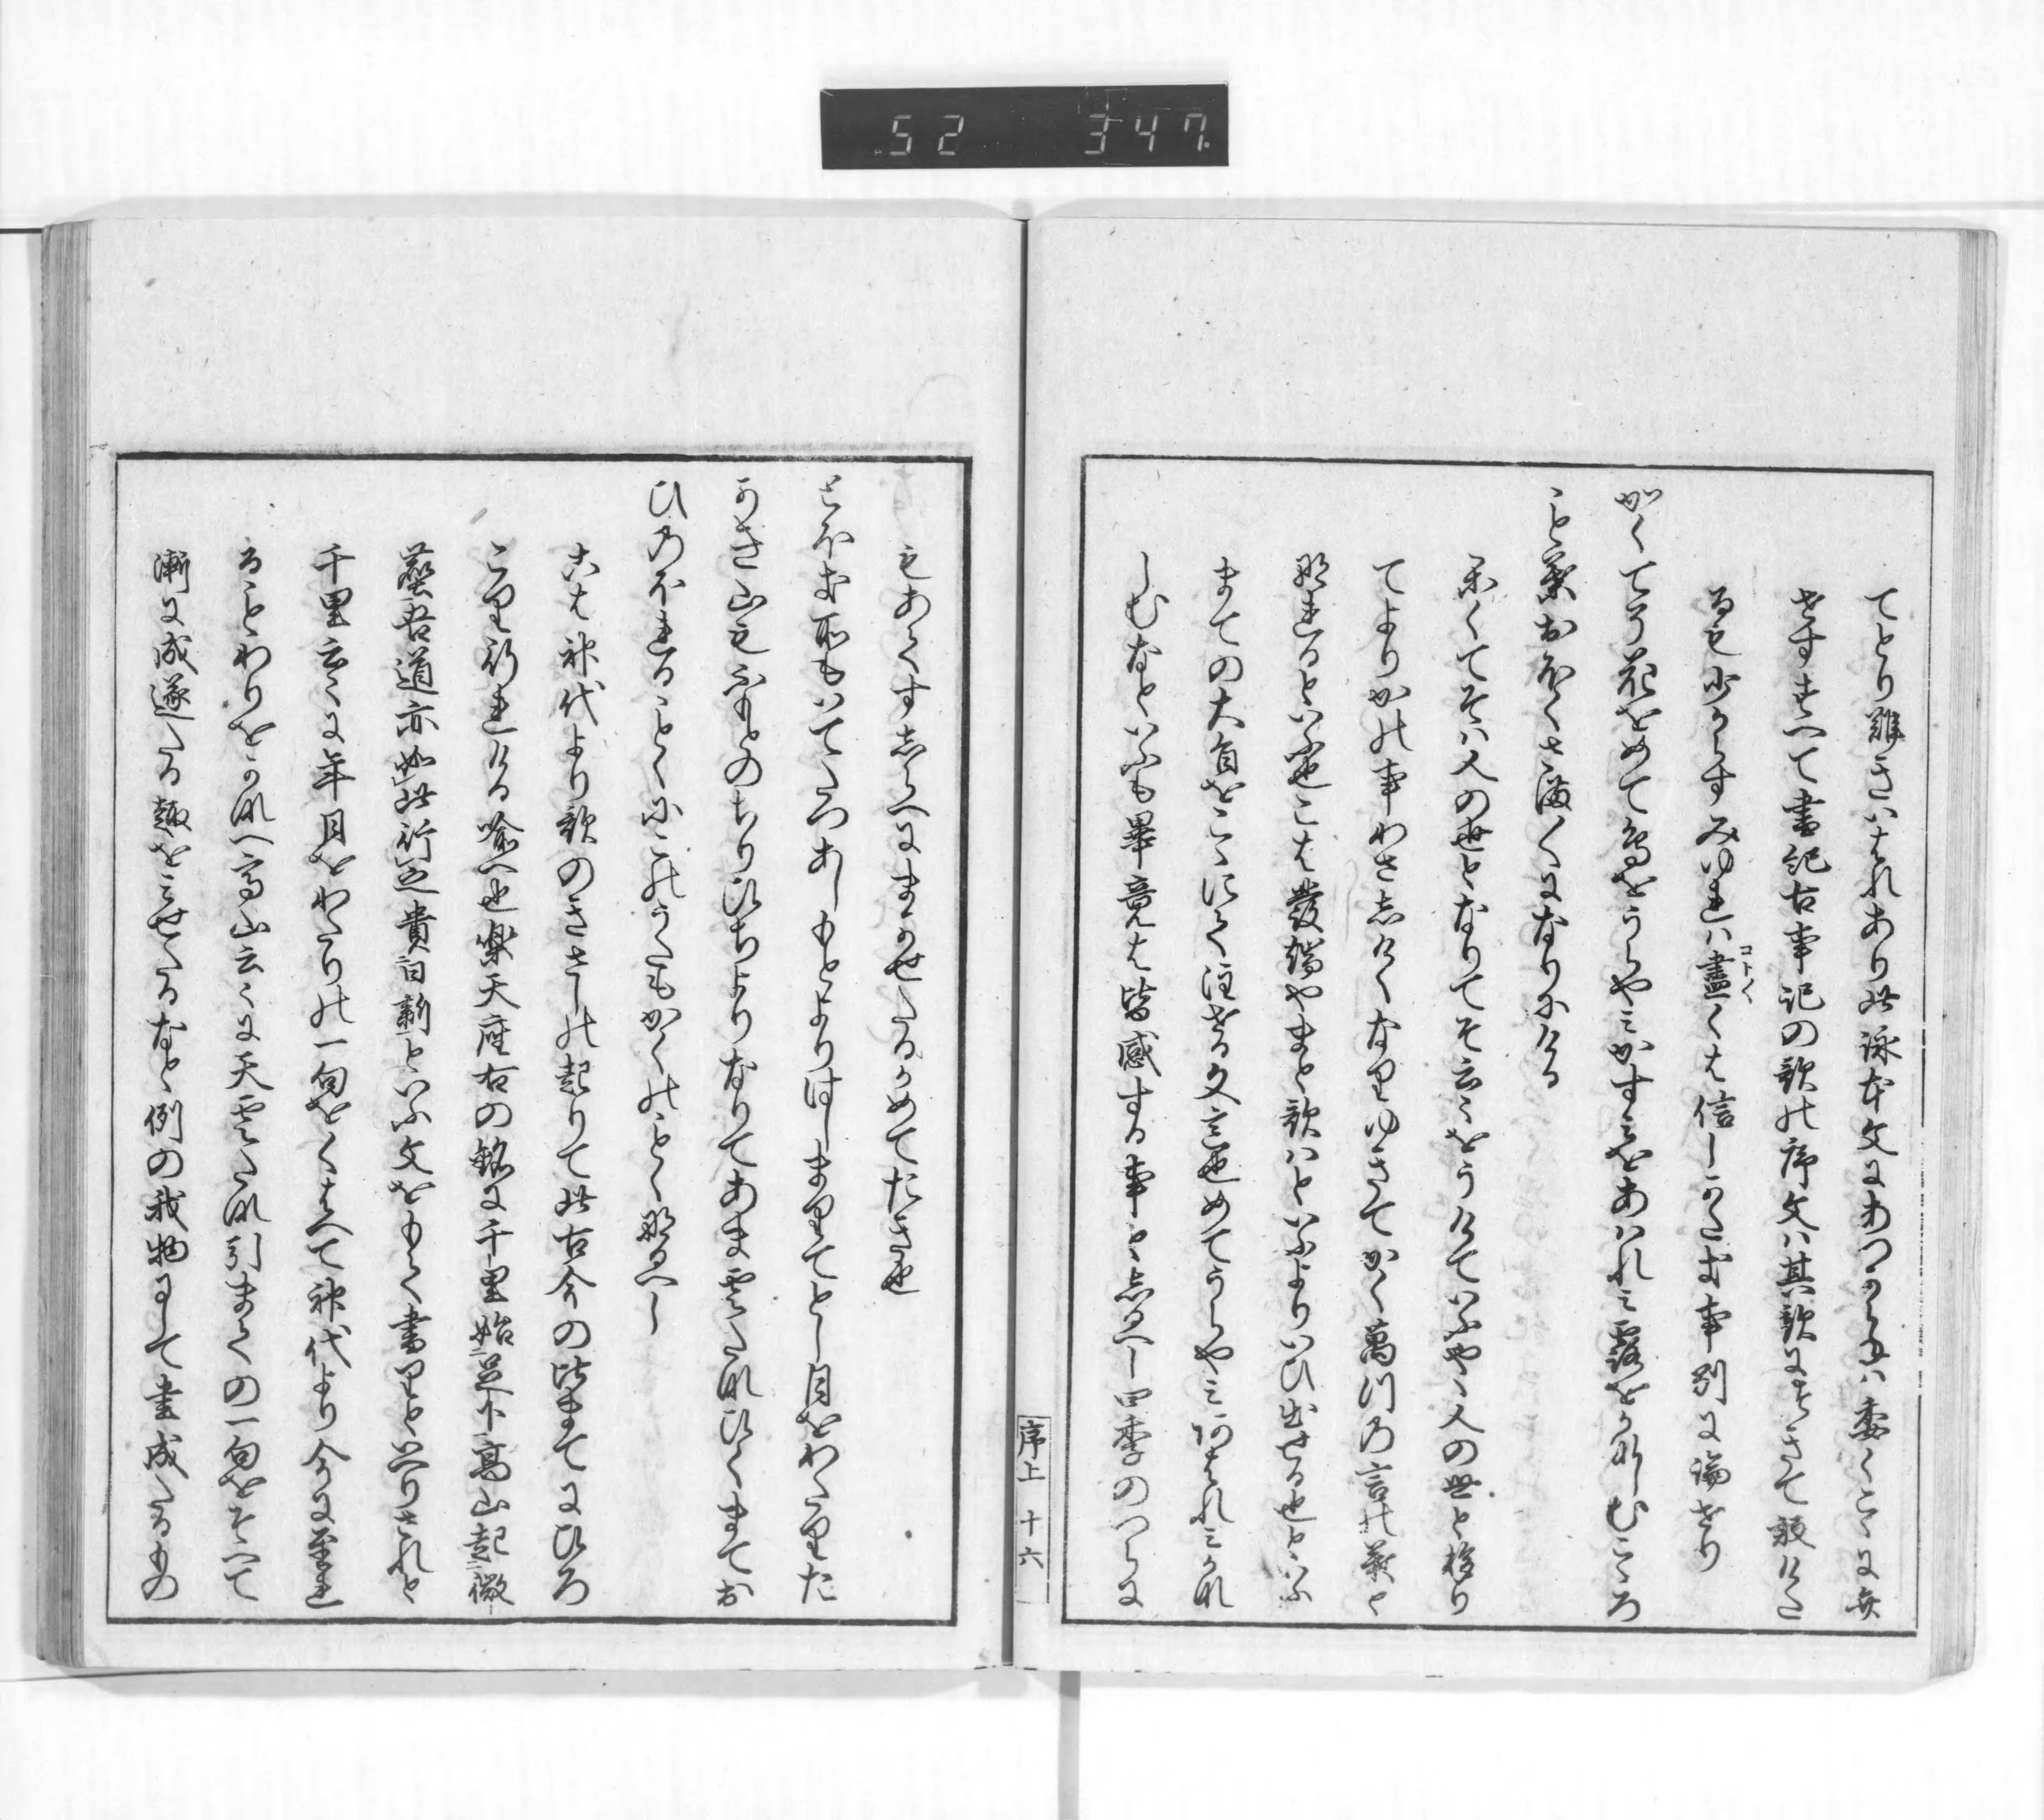 52 347
てとり難きいはれあり此詠本文にあつからねは委くこゝに弁
せすすへて書紀古事記の歌の序文は其歌にそむきて
るも少からすみゆれは盡くは信しかたき事別に論せり
コトヾヽ
かくてそ花をめて鳥をうらやみかすみをあはれみ露をかなしむこゝろ
こと葉おほくさま〳〵になりにける
かくてそは人の世となりてそ云々をうけていふやゝ人の世と移り
てよりかの事わさしけくなりゆきてかく萬つの言の葉と
なれるといふ也こは發端やまと歌はといふよりいひ出せる也といふ
まての大旨をこゝにて注せる文也めてうらやみあはれみかな
しむなといふも畢竟は皆感する事としるへし四季のつらに
序上 十六
もあらすしらへにまかせたるかめてたき也
とほき所もいてたつあしもとよりはしまりてとし月をわたりた
かき山もふもとのちりひちよりなりてあま雲たなひくまてお
ひのほれることくにこのうたもかくのことくなるへし
こは神代より歌のきさしの起りて此古今の比まてにひろ
こり行れける喩へ也樂天座右の銘に千里始足下高山起微
塵吾道亦如此行之貴日新といふ文をもて書りといへりされと
千里云々に年月をわたりの一句をくはへて神代より今に至れ
ることわりをかねへ高山云々に天雲たな引まての一句をそへて
漸に成遂たる趣をみせたるなと例の我物にして書成たるもの